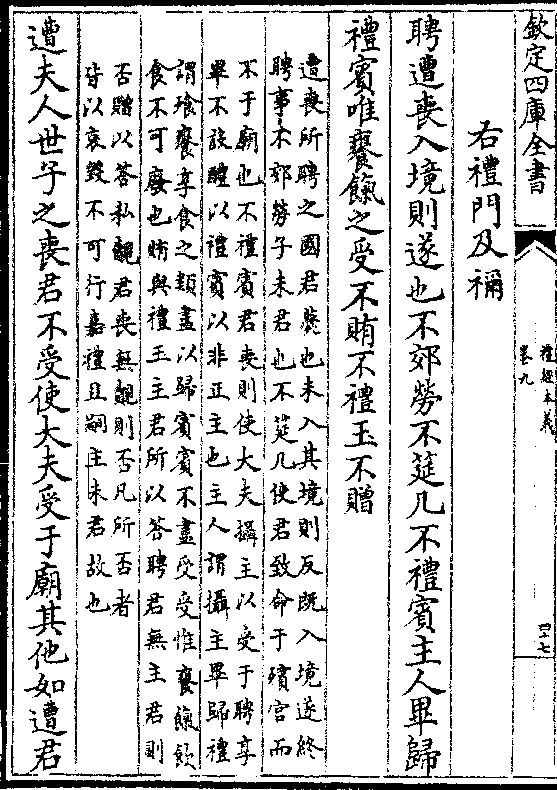 欽定四庫全書
禮經本義
卷九
四十七
右禮門及禰
聘遭喪入境則遂也不郊勞不筵几不禮賓主人畢歸
禮賓唯饔餼之受不賄不禮玉不贈
遭喪所聘之國君薨也未入其境則反既入境遂終
聘事不郊勞子未君也不筵几使君致命于殯宮而
不于廟也不禮賓君喪則使大夫攝主以受于聘享
畢不設醴以禮賓以非正主也主人謂攝主畢歸禮
謂飧饔享食之類盡以歸賓賓不盡受受惟饔餼飲
食不可廢也賄與禮玉主君所以答聘君無主君則
否贈以答私覿君喪無覿則否凡所否者
皆以哀毀不可行嘉禮且嗣主未君故也
遭夫人世子之喪君不受使大夫受于廟其他如遭君